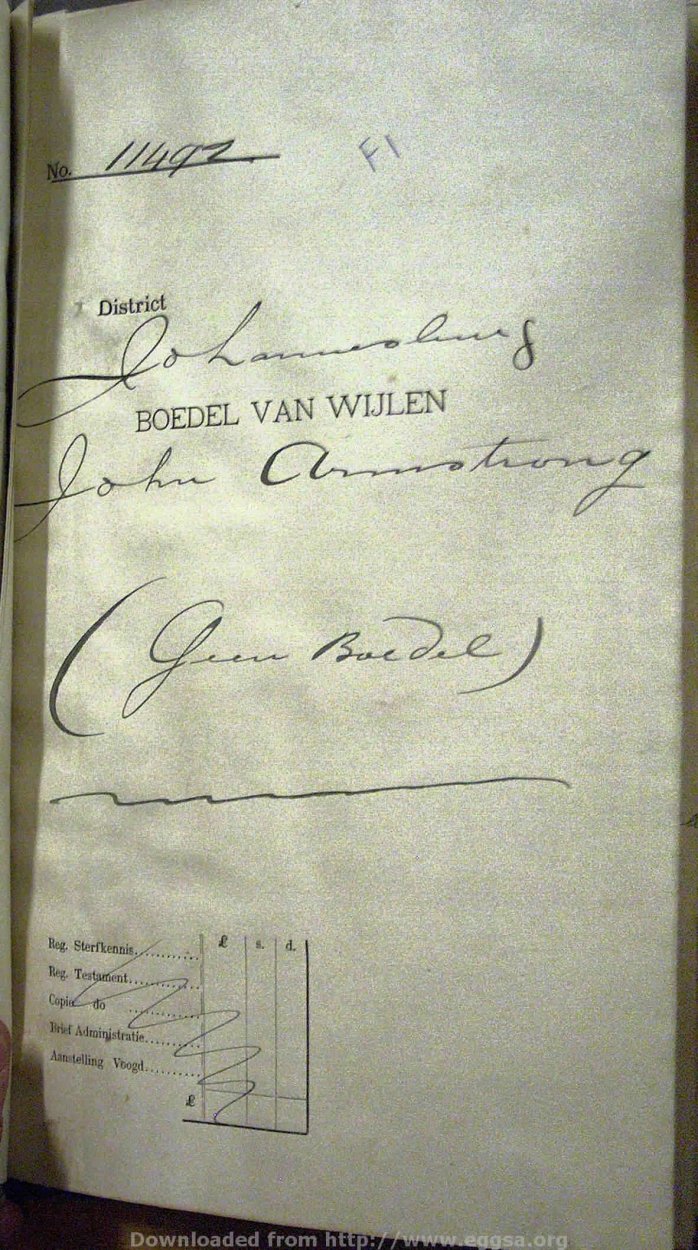 No. 11492.
F1
District
Johannesburg
BOEDEL VAN WIJLEN
John Armstrong
(Geen Boedel)
£ s. d.
Reg. Sterfkennis..........
Reg. Testament..........
Copie do ..........
Brief Administratie..........
Aanstelling Voogd..........
£
Downloaded from http://www.eggsa.org